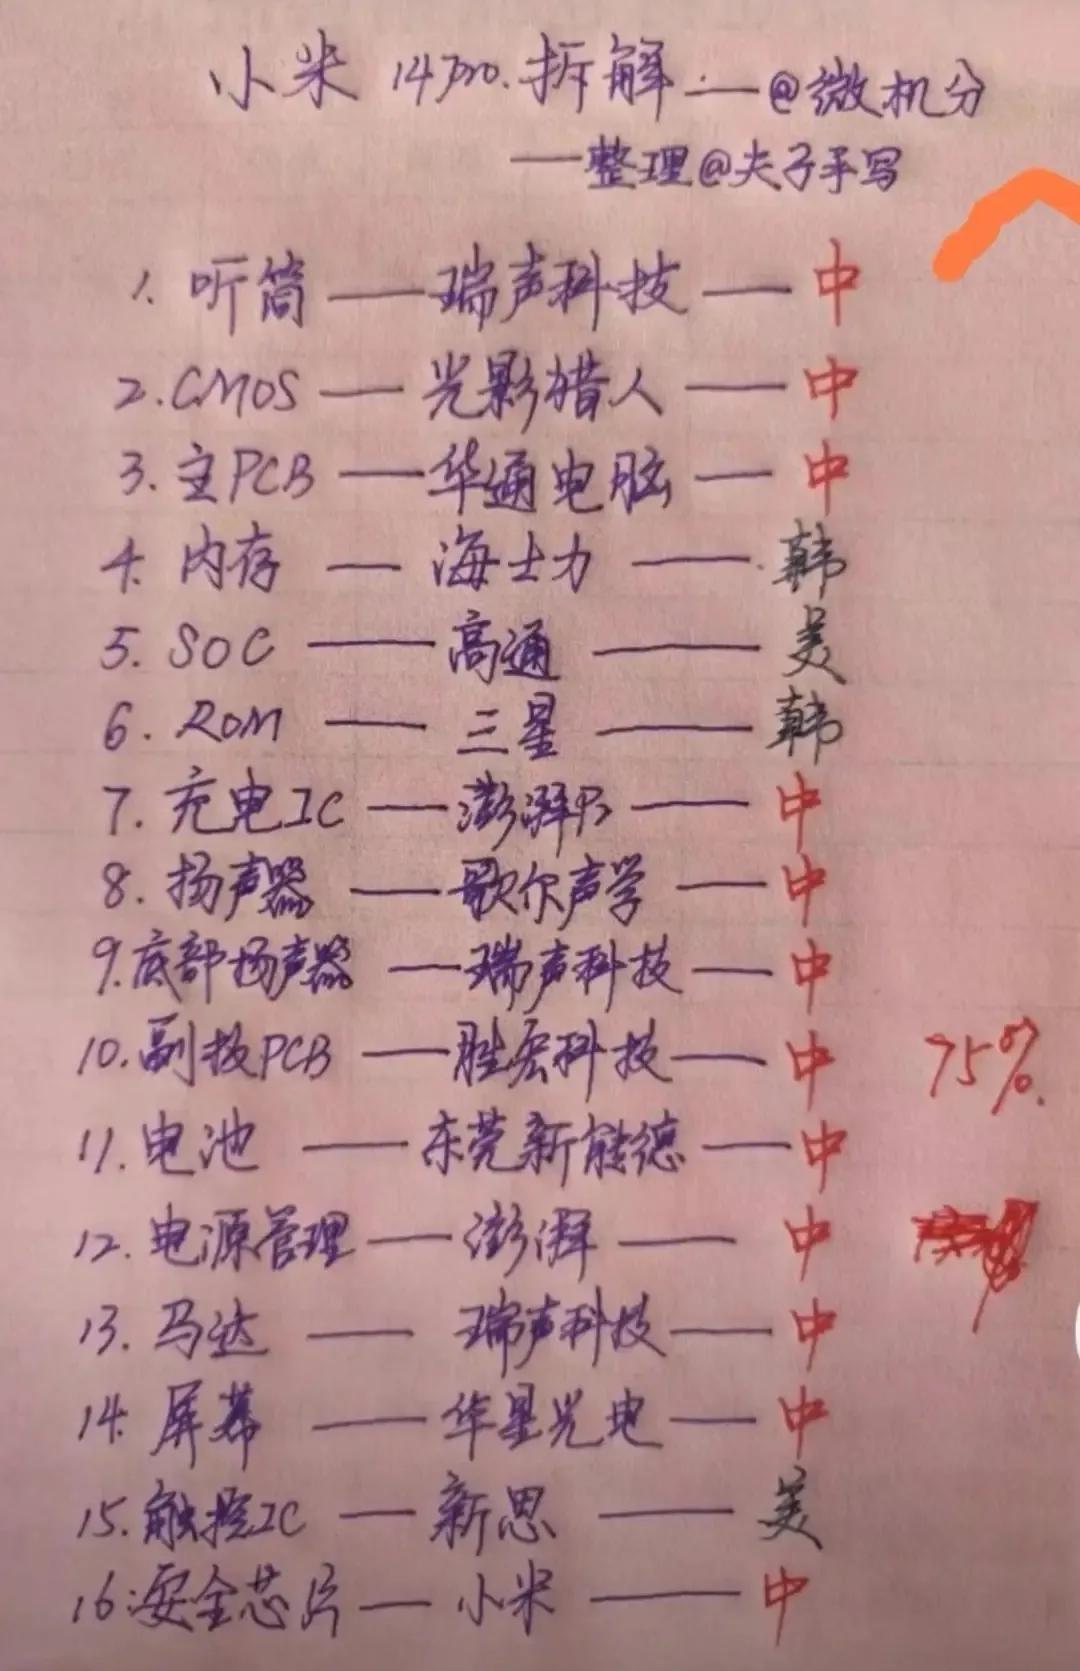 小米 14Pro.拆解.——@微机分
——整理@夫子手写
1. 听筒——瑞声科技——中
2.CMOS——光影猎人——中
3.主PCB——华通电脑——中
4. 内存——海士力——韩
5. SOC——高通——美
6. ROM——三星——韩
7. 充电IC——澎湃P2——中
8. 扬声器——歌尔声学——中
9.底部扬声器——瑞声科技——中
10.副板PCB——胜宏科技——中 75%.
11.电池——东莞新能德——中
12.电源管理——澎湃——中
13.马达——瑞声科技——中
14.屏幕——华星光电——中
15.触控IC——新思——美
16.安全芯片——小米——中